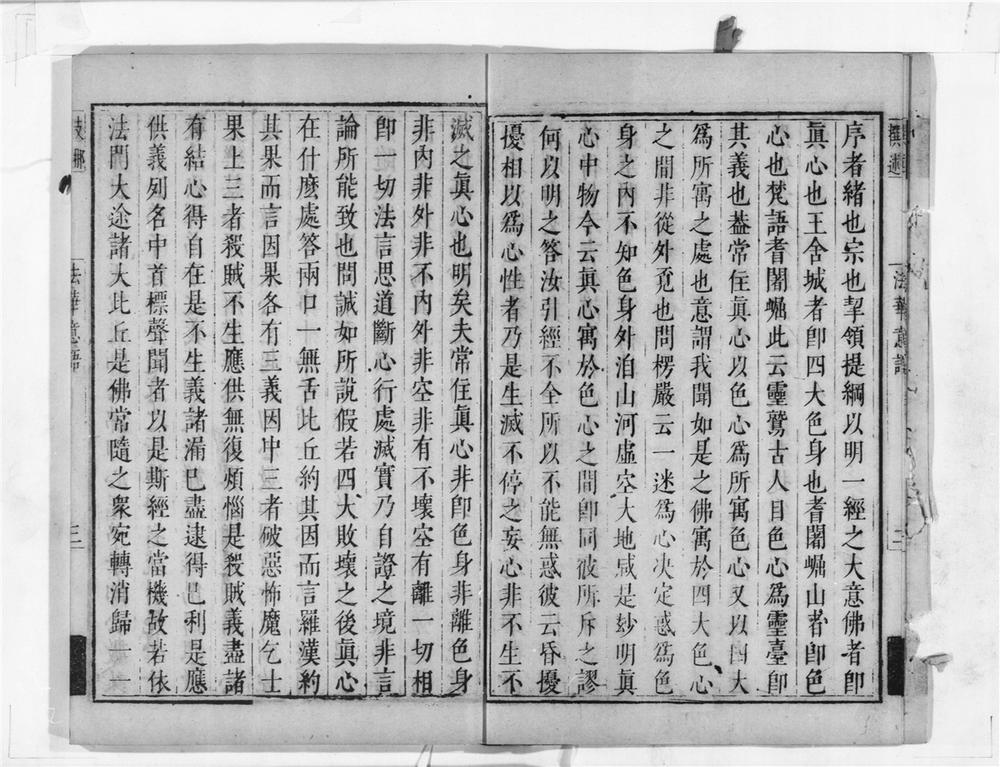 序者緒也宗也挈領提綱以明一經之大意佛者卽
眞心也王舍城者卽四大色身也耆闍崛山者卽色
心也梵語耆闍崛此云靈鷲古人目色心爲靈臺卽
其義也葢常住眞心以色心爲所寓色心又以四大
爲所寓之處也意謂我聞如是之佛寓於四大色心
之間非從外覔也問楞嚴云一迷爲心决定惑爲色
身之內不知色身外洎山河虛空大地咸是玅明眞
心中物今云眞心寓於色心之間卽同彼所斥之謬
何以明之答汝引經不全所以不能無惑彼云昏擾
擾相以爲心性者乃是生滅不停之妄心非不生不
滅之眞心也明矣夫常住眞心非卽色身非離色身
非內非外非不內外非空非有不壞空有離一切相
卽一切法言思道斷心行處滅實乃自證之境非言
論所能致也問誠如所說假若四大敗壞之後眞心
在什麽處答兩口一無舌比丘約其因而言羅漢約
其果而言因果各有三義因中三者破惡怖魔乞士
果上三者殺賊不生應供無復煩惱是殺賊義盡諸
有結心得自在是不生義諸漏巳盡逮得巳利是應
供義列名中首標聲聞者以是斯經之當機故若依
法門大途諸大比丘是佛常隨之衆宛轉消歸一一
法華意語
二
法華意語
三